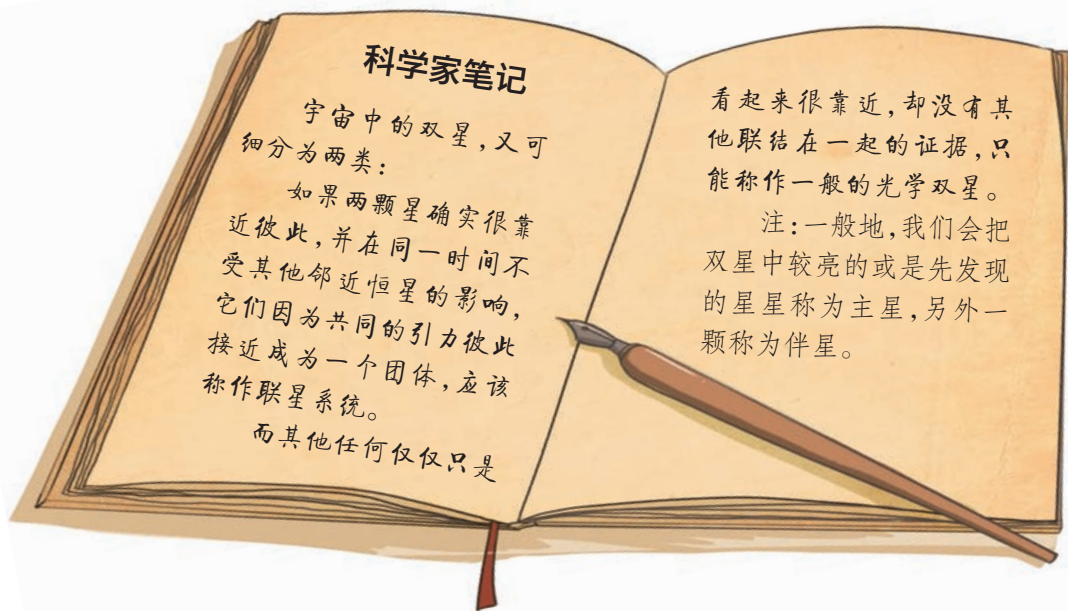 科学家笔记
宇宙中的双星,又可
细分为两类:
如果两颗星确实很靠
近彼此,并在同一时间不
受其他邻近恒星的影响,
它们因为共同的引力彼此
接近成为一个团体,应该
称作联星系统。
而其他任何仅仅只是
看起来很靠近,却没有其
他联结在一起的证据,只
能称作一般的光学双星。
注:一般地,我们会把
双星中较亮的或是先发现
的星星称为主星,另外一
颗称为伴星。